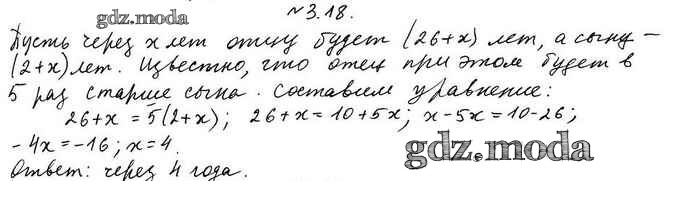 №3.18.
gdz.moda
Пусть через x лет отцу будет (26+x) лет, а сыну –
(2+x) лет. Известно, что отец при этом будет в
5 раз старше сына. Составим уравнение:
26+x = 5(2+x); 26+x = 10+5x; x-5x = 10-26;
-4x = -16; x = 4.
gdz.moda
Ответ: через 4 года.